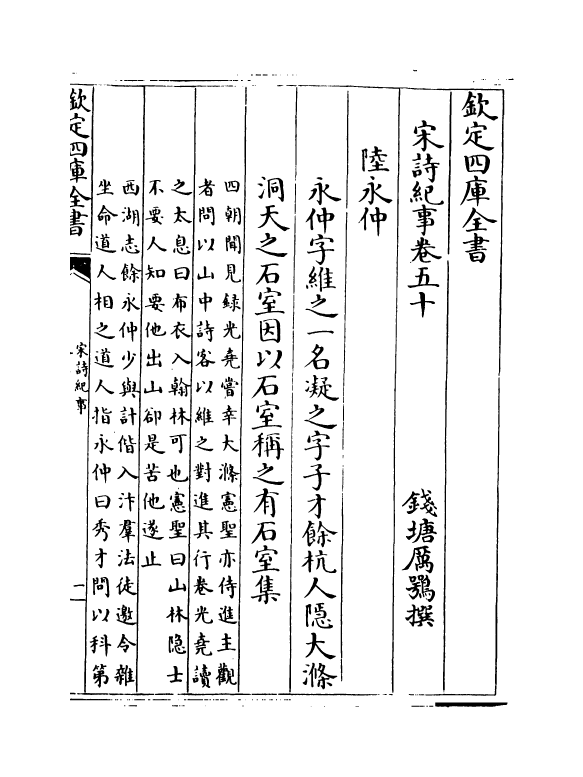 欽定四庫全書
宋詩紀事卷五十
錢塘厲鶚撰
陸永仲
永仲字維之一名凝之字子才餘杭人隱大滌
洞天之石室因以石室稱之有石室集
四朝聞見録光堯嘗幸大滌憲聖亦侍進主觀
者問以山中詩客以維之對進其行卷光堯讀
之太息曰布衣入翰林可也憲聖曰山林隱士
不要人知要他出山卻是苦他遂止
西湖志餘永仲少與計偕入汴羣法徒邀令雜
坐命道人相之道人指永仲曰秀才問以科第
欽定四庫全書
宋詩紀事
一